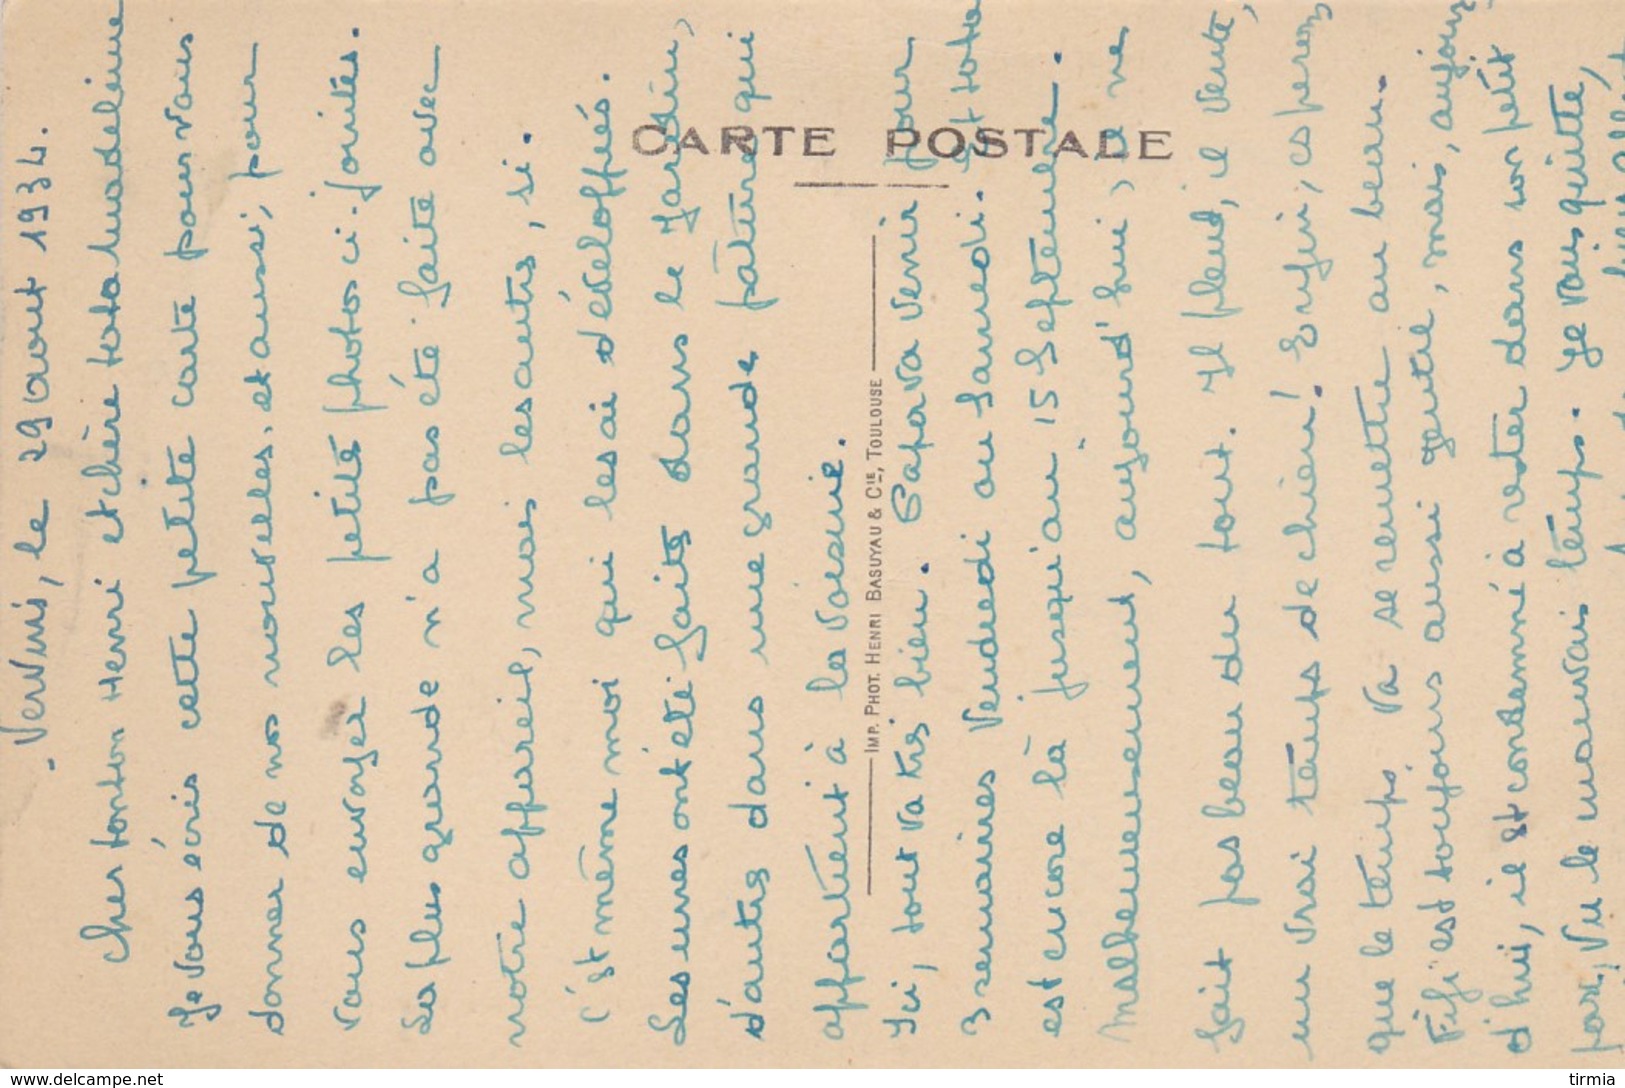 - Vervins, le 29 aout 1934.
Cher tonton Henri et chère tata Madeleine
Je vous écris cette petite carte pour vous
donner de nos nouvelles, et aussi, pour
vous envoyer les petites photos ci-jointes.
La plus grande n'a pas été faite avec
notre appareil, mais les autres, si.
C'est même moi qui les ai développés.
Les unes ont été faites dans le Jardin,
d'autres dans une grande pâture qui
appartient à la voisine.
Ici, tout va très bien. Papa va venir pour
3 semaines Vendredi ou Samedi. Et tata
est encore là jusqu'au 15 Septembre.
Malheureusement, aujourd'hui, il ne
fait pas beau du tout. Il pleut, il vente,
un vrai temps de chien! Enfin, espérons
que le temps va se remettre au beau.
Fifi est toujours aussi gentil, mais, aujour
d'hui, il est condamné à rester dans son petit
, vu le mauvais temps. Je vous quitte,
CARTE POSTALE
IMP. PHOT. HENRI BASUYAU & CIE, TOULOUSE
www.delcampe.net
tirmia